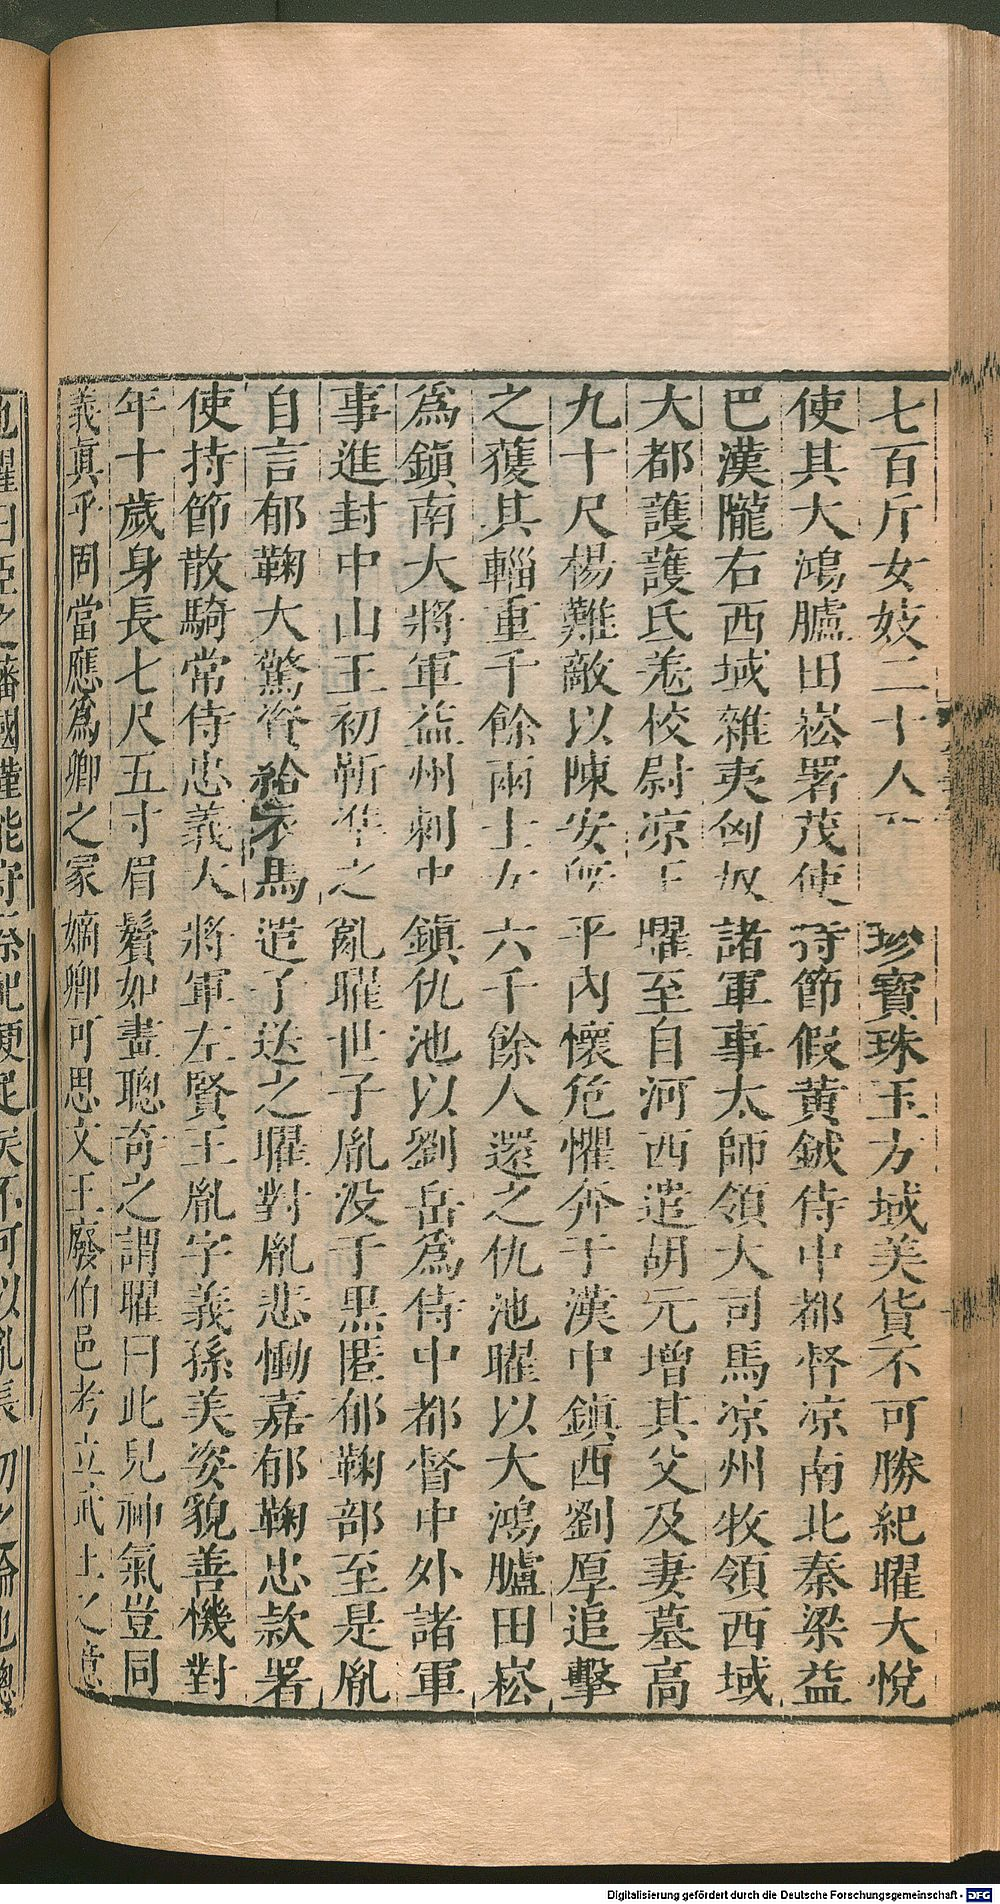 七百斤女妓二十人珍寶珠玉方域美貨不可勝紀曜大悅
使其大鴻臚田崧署茂使持節假黃鉞侍中都督涼南北秦梁益
巴漢隴右西域雜夷匈奴諸軍事太師領大司馬涼州牧領西域
大都護護氐羌校尉涼王曜至自河西遣胡元增其父及妻墓高
九十尺楊難敵以陳安既平內懷危懼奔于漢中鎮西劉厚追擊
之獲其輜重千餘兩士女六千餘人還之仇池曜以大鴻臚田崧
爲鎮南大將軍益州刺史鎮仇池以劉岳爲侍中都督中外諸軍
事進封中山王初靳準之亂曜世子胤没于黑匿郁鞠部至是胤
自言郁鞠大驚資給衣馬遣子送之曜對胤悲慟嘉郁鞠忠款署
使持節散騎常侍忠義大將軍左賢王胤字義孫美姿貌善機對
年十歲身長七尺五寸眉鬢如畫聰奇之謂曜曰此兒神氣豈同
義真乎固當應爲卿之冢嫡卿可思文王廢伯邑考立武王之意
也曜曰臣之藩國僅能守祭祀便足矣不可以亂長幼之倫也聰
Digitalisierung gefördert durch die Deutsche Forschungsgemeinschaft - DFG